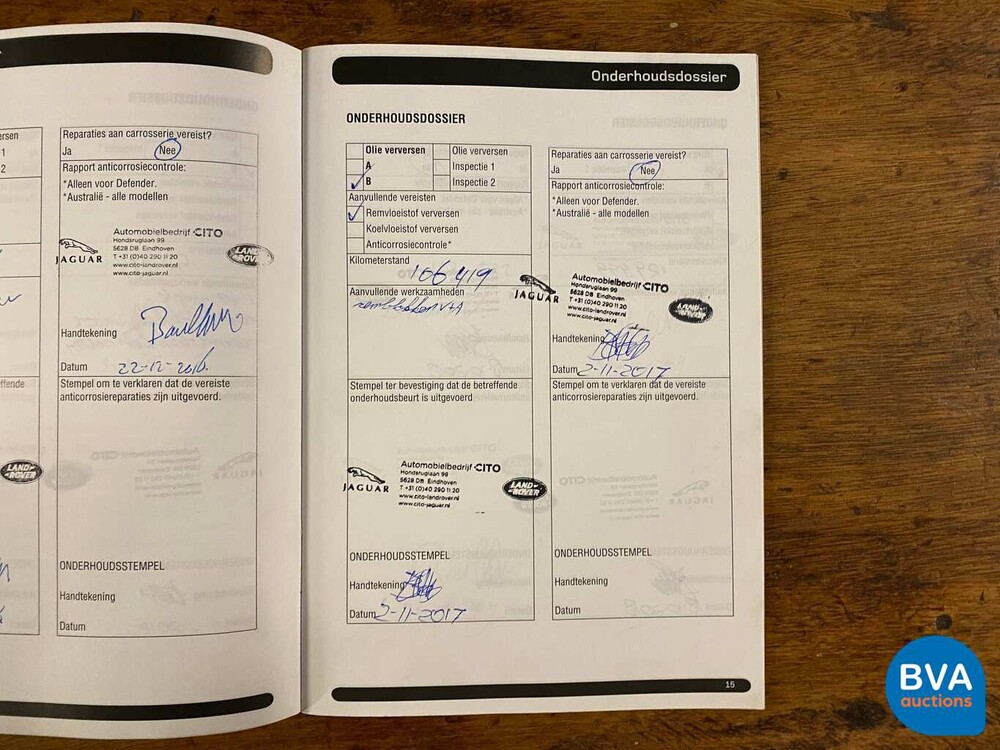 ersen
1
2
effende
LAND-
ROVER
Reparaties aan carrosserie vereist?
Ja Nee
Rapport anticorrosiecontrole:
*Alleen voor Defender.
*Australië - alle modellen
JAGUAR
Automobielbedrijf CITO
Hondsruglaan 99
5628 DB Eindhoven
T +31 (0)40 290 11 20
www.cito-landrover.nl
www.cito-jaguar.nl
LAND-
ROVER
Handtekening
Datum 22-12-2016.
Stempel om te verklaren dat de vereiste
anticorrosiereparaties zijn uitgevoerd.
ONDERHOUDSSTEMPEL
Handtekening
Datum
Onderhoudsdossier
ONDERHOUDSDOSSIER
Olie verversen Olie verversen
A Inspectie 1
B Inspectie 2
Aanvullende vereisten
Remvloeistof verversen
Koelvloeistof verversen
Anticorrosiecontrole*
Kilometerstand
106 419
Aanvullende werkzaamheden
remblokken V+A
Stempel ter bevestiging dat de betreffende
onderhoudsbeurt is uitgevoerd
JAGUAR
Automobielbedrijf CITO
Hondsruglaan 99
5628 DB Eindhoven
T +31 (0)40 290 11 20
www.cito-landrover.nl
www.cito-jaguar.nl
LAND-
ROVER
ONDERHOUDSSTEMPEL
Handtekening
Datum 2-11-2017
Reparaties aan carrosserie vereist?
Ja Nee
Rapport anticorrosiecontrole:
*Alleen voor Defender.
*Australië - alle modellen
JAGUAR
Automobielbedrijf CITO
Hondsruglaan 99
5628 DB Eindhoven
T +31 (0)40 290 11 20
www.cito-landrover.nl
www.cito-jaguar.nl
LAND-
ROVER
Handtekening
Datum 2-11-2017
Stempel om te verklaren dat de vereiste
anticorrosiereparaties zijn uitgevoerd.
ONDERHOUDSSTEMPEL
Handtekening
Datum
15
BVA
auctions